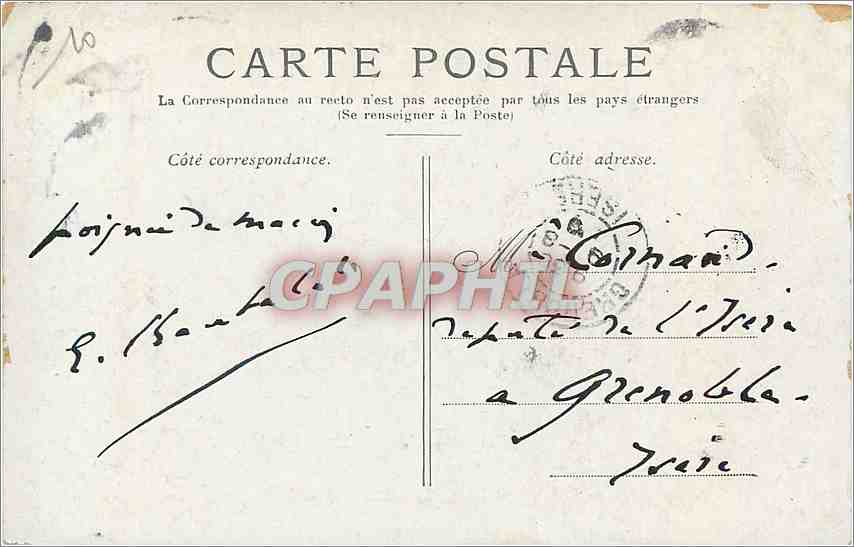 10
CARTE POSTALE
La Correspondance au recto n'est pas acceptée par tous les pays étrangers
(Se renseigner à la Poste)
Côté correspondance.
Côté adresse.
poignée de main
G.
Mr Cornand.
député de l'Isère
a Grenoble.
Isère
ISERE
CPAPHIL